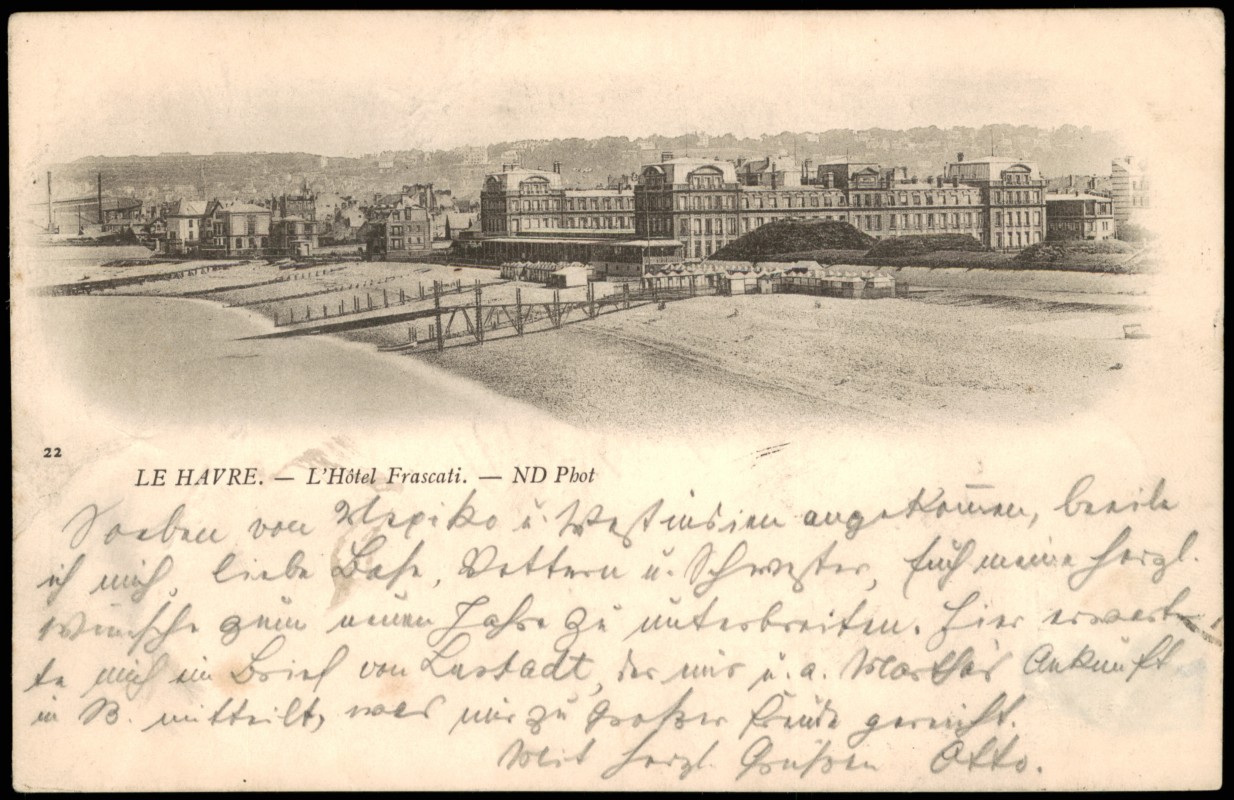 22
LE HAVRE. — L'Hôtel Frascati. — ND Phot
Soeben von Mexiko u. Westindien angekom̅en, beeile
ich mich, liebe Base, Vettern u. Schwester, Euch meine herzl.
Wünsche zum neuen Jahre zu unterbreiten. Hier erwarte-
te mich ein Brief von Lustadt, der mir u. a. Marthas Ankunft
in B. mitteilt, was mir zu großer Freude gereicht.
Mit herzl. Grüßen Otto.